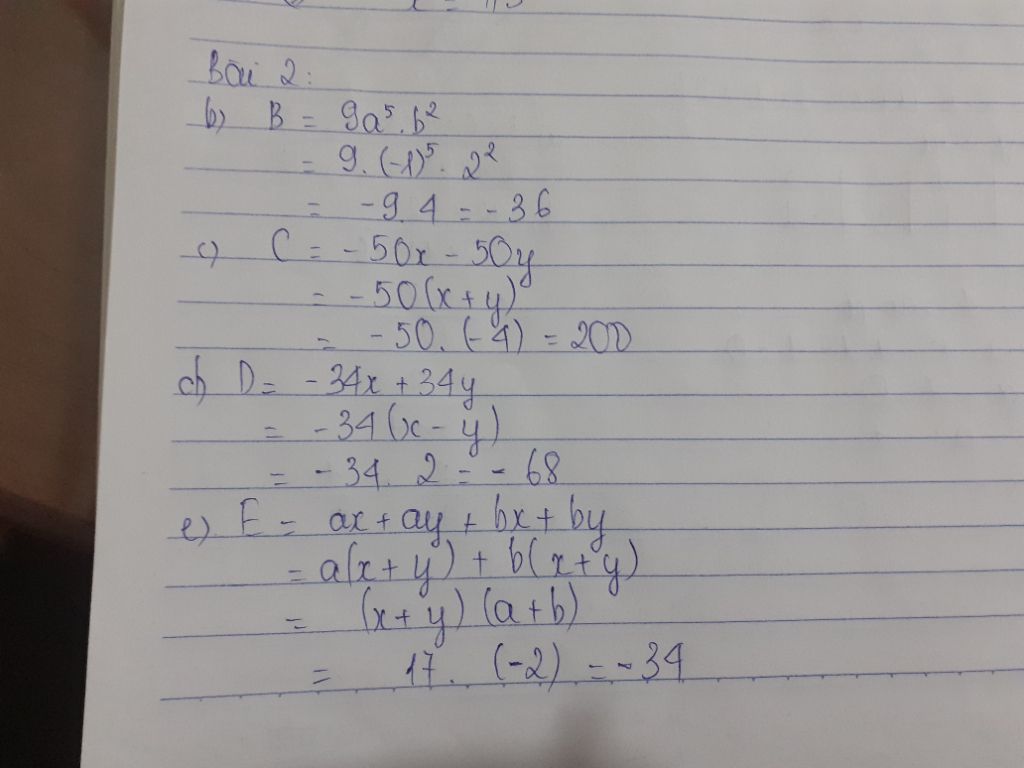 Bài 2:
b) B = 9a⁵.b²
= 9.(-1)⁵. 2²
= -9.4 = -36
c) C = -50x - 50y
= -50(x+y)
= -50.(-4) = 200
d) D = -34x + 34y
= -34(x-y)
= -34.2 = -68
e) E = ax + ay + bx + by
= a(x+y) + b(x+y)
= (x+y)(a+b)
= 17.(-2) = -34